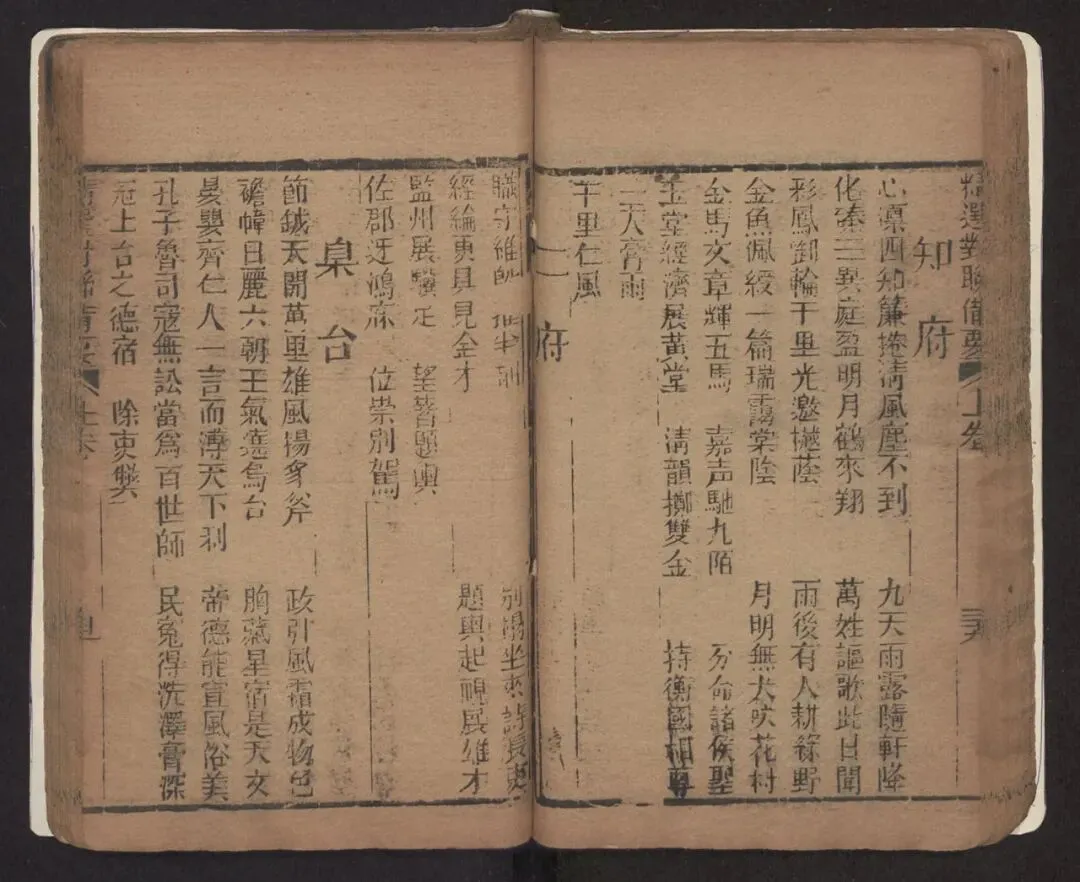 精選對聯備要 上卷
知府
心凛四知簾捲清風塵不到 九天雨露隨軒降
化臻三異庭盈明月鶴來翔 萬姓謳歌此日聞
彩鳳卸輪千里光邀樾蔭 雨後有人耕綠野
金魚佩綬一篇瑞靄棠陰 月明無犬吠花村
金馬文章輝五馬 嘉声馳九陌 分命諸侯聖
玉堂經濟展黃堂 清韻擲雙金 持衡國相尊
二天膏雨
千里仁風
二府
職守維 
經綸更具見全才 題輿起視展雄才
監州展驥足 望著題輿
佐郡迓鴻 位崇別駕
臬台
節鉞天開萬里雄風揚豸斧 政引風霜成物色
襜幃日麗六朝王氣遶烏台 胸羅星宿是天文
晏嬰齊仁人一言而溥天下利 帝德能宣風俗美
孔子魯司寇無訟當爲百世師 民冤得洗澤膏深
冠上台之德宿 除吏
精選對聯備要 上卷